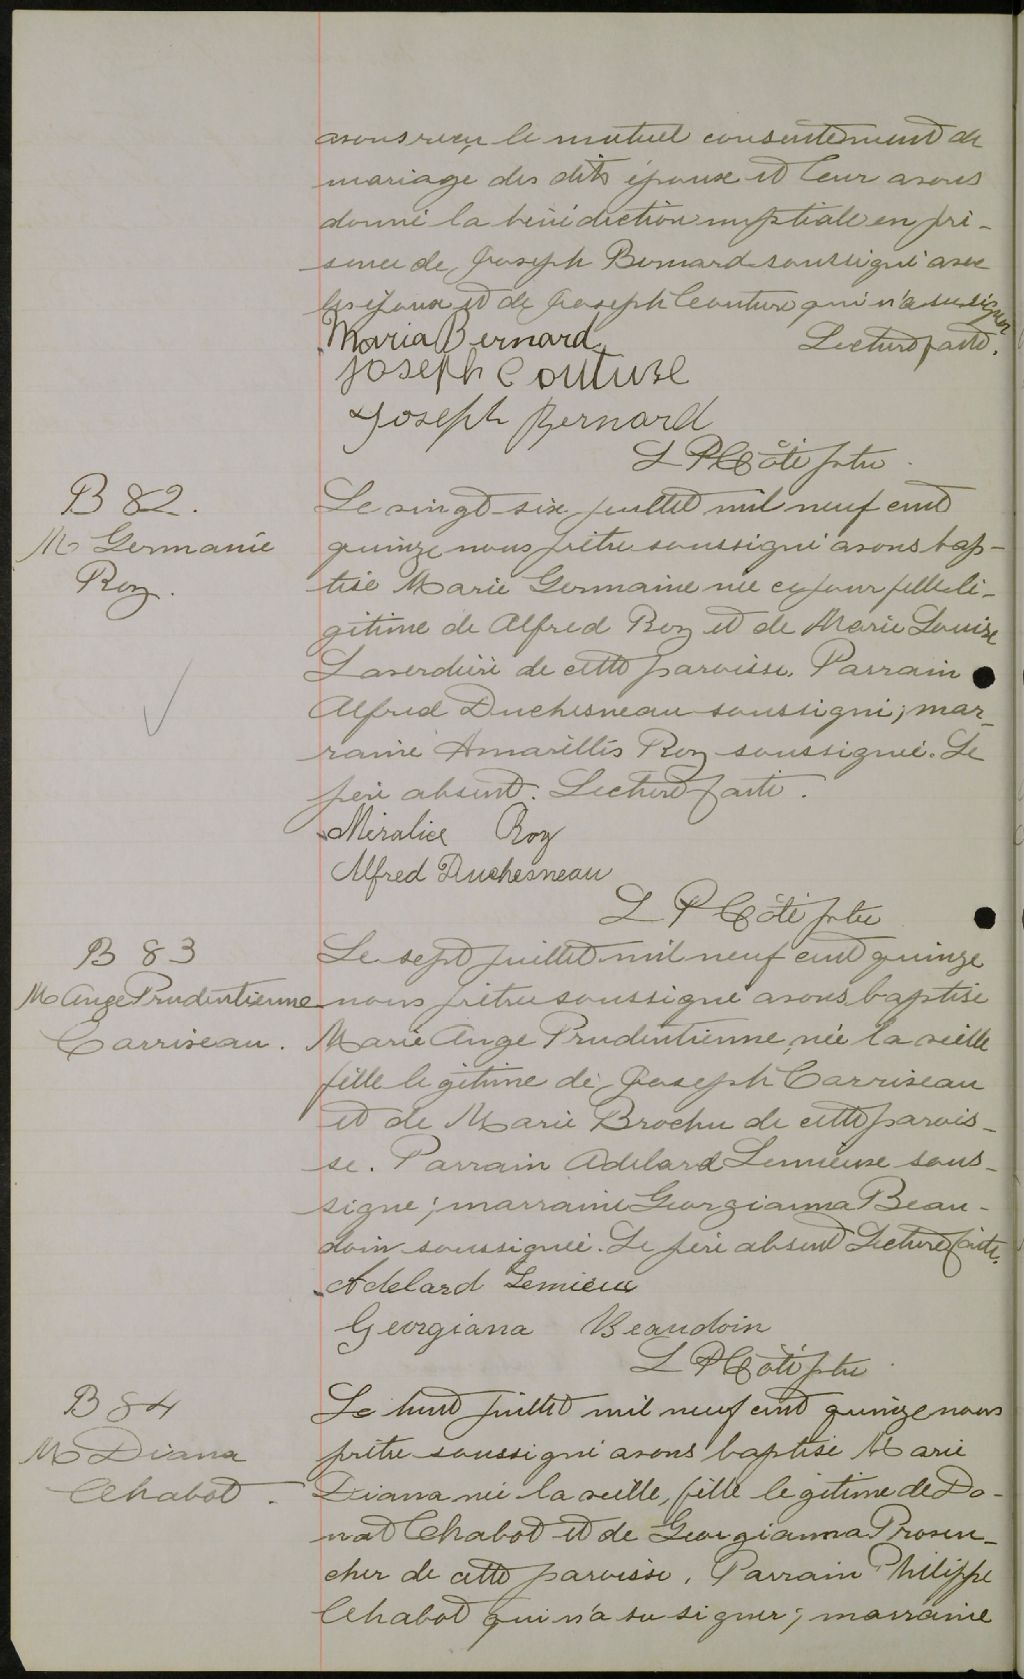 avons reçu le mutuel consentement de
mariage des dits époux et leur avons
donné la bénédiction nuptiale en pré-
sence de Joseph Bernard soussigné avec
les époux et de Joseph Couture qui n'a su signer
Lecture faite.
Maria Bernard
Joseph Couture
Joseph Bernard
L P Côté ptre.
B 82.
M Germanie
Roy.
Le vingt-six juillet mil neuf cent
quinze nous prêtre soussigné avons bap-
tisé Marie Germaine née ce jour fille lé-
gitime de Alfred Roy et de Marie Louise
Laverdière de cette paroisse. Parrain
Alfred Duchesneau soussigné; mar-
raine Amarillis Roy soussignée. Le
père absent. Lecture faite.
Miralice Roy
Alfred Duchesneau
L P Côté ptre
B 83
M Ange Prudentienne
Carriseau.
Le sept juillet mil neuf cent quinze
nous prêtre soussigné avons baptisé
Marie Ange Prudentienne, née la veille
fille légitime de Joseph Carriseau
et de Marie Brochu de cette parois-
se. Parrain Adelard Lemieux sous-
signé; marraine Georgianna Beau-
doin soussignée. Le père absent Lecture faite.
Adelard Lemieu
Georgiana Beaudoin
L P Côté ptre
B 84
M Diana
Chabot.
Le huit juillet mil neuf cent quinze nous
prêtre soussigné avons baptisé Marie
Diana née la veille, fille légitime de Do-
nat Chabot et de Georgianna Proven-
cher de cette paroisse. Parrain Philippe
Chabot qui n'a su signer; marraine